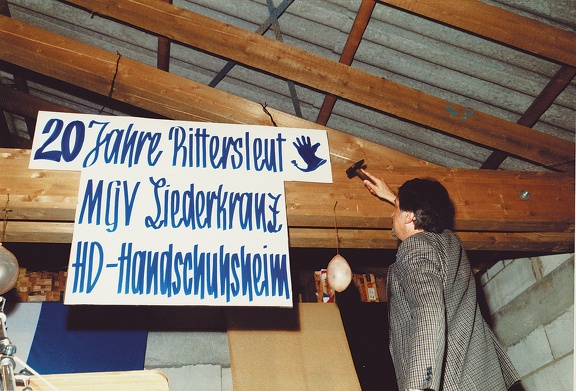 20 Jahre Rittersleut
MGV Liederkranz
HD-Handschuhsheim